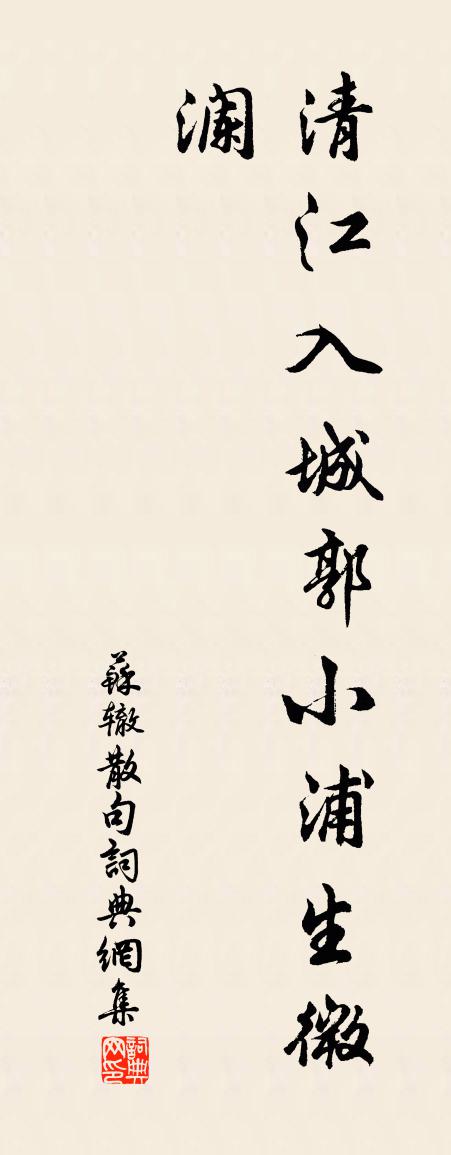 清江入城郭小浦生微
澜
蘇辙散句詞典網集
詞典网印